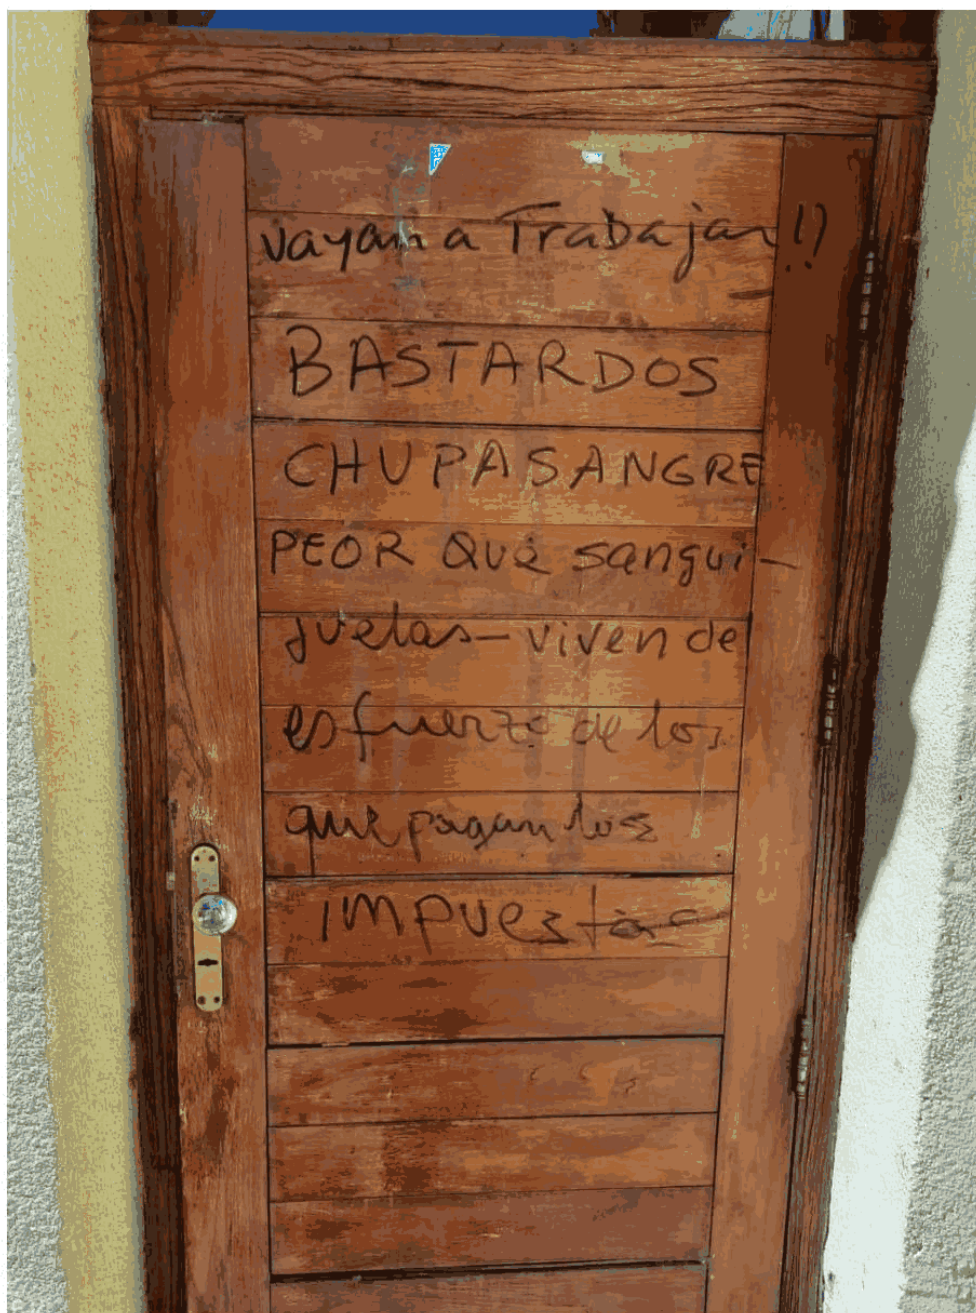 vayan a Trabajar!!
BASTARDOS
CHUPASANGRE
PEOR QUE sangui-
juelas - viven del
esfuerzo de los
que pagan los
IMPUESTOS